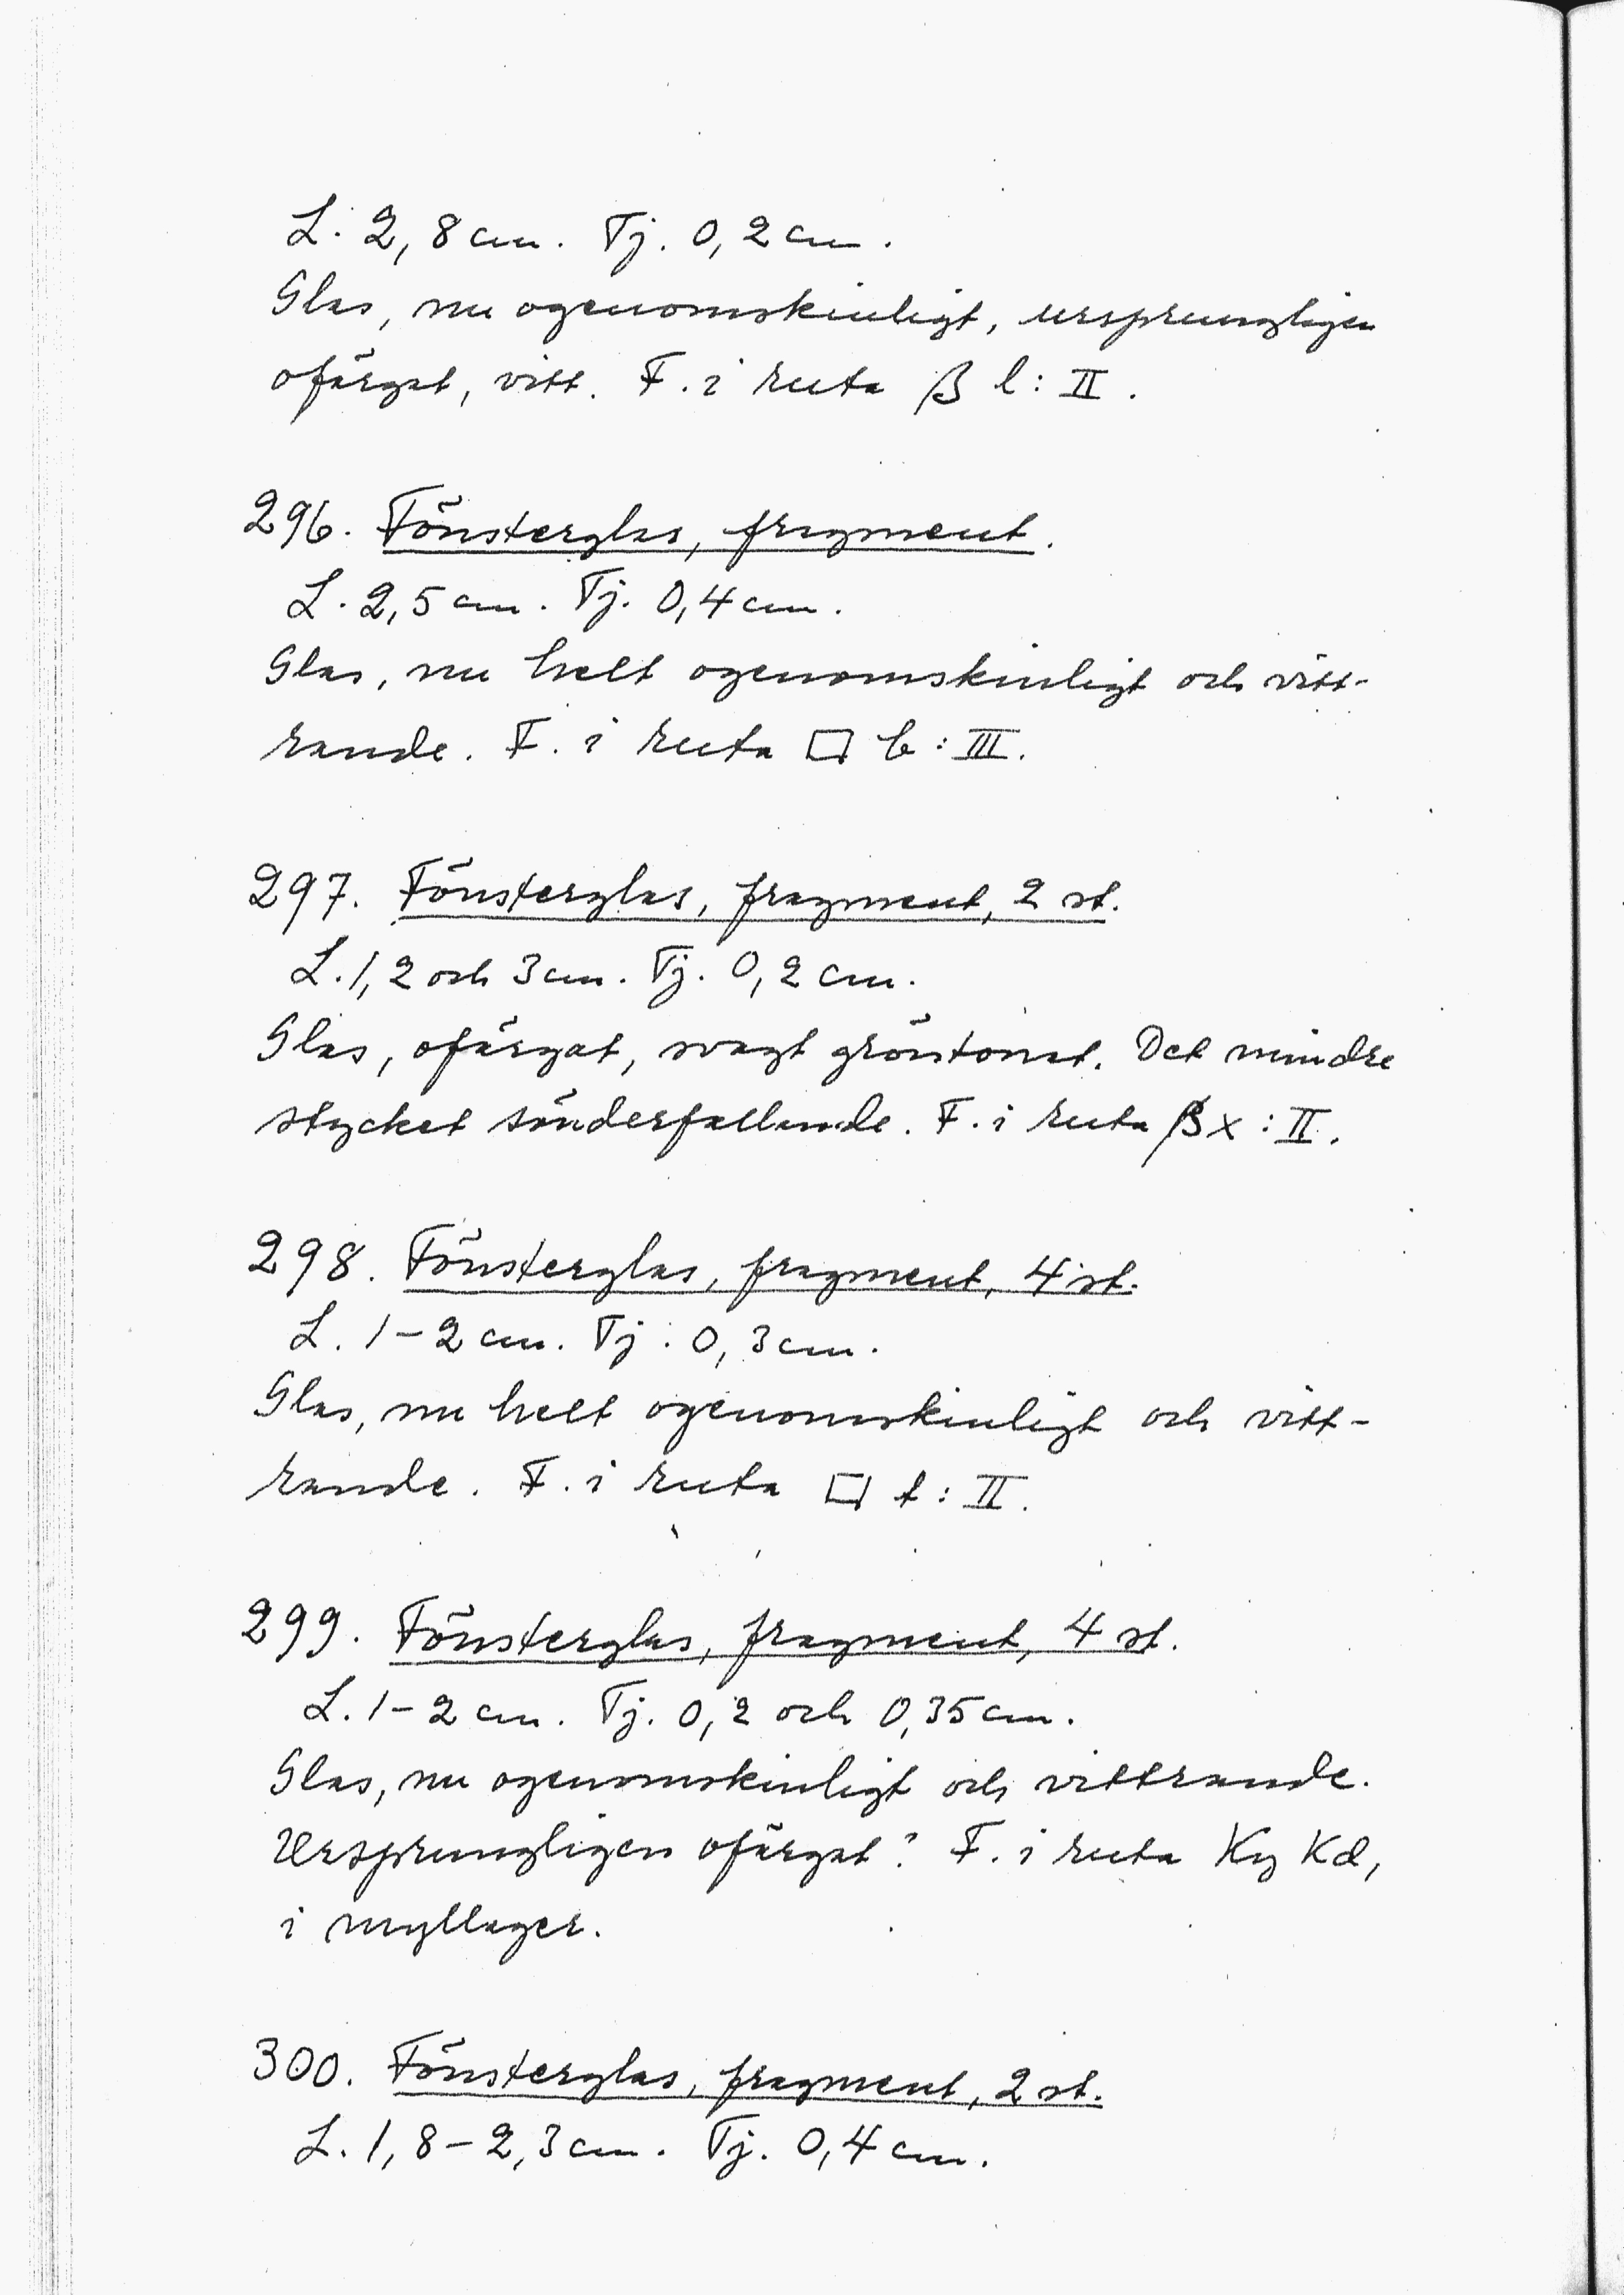 L. 2,8 cm. Tj. 0,2 cm.
Glas, nu ogenomskinligt, ursprungligen
ofärgat, vitt. F. i ruta β l: II.
296. Fönsterglas, fragment.
L. 2,5 cm. Tj. 0,4 cm.
Glas, nu helt ogenomskinligt och vitt-
rande. F. i ruta □ b: III.
297. Fönsterglas, fragment, 2 st.
L. 1,2 och 3 cm. Tj. 0,2 cm.
Glas, ofärgat, svagt gröntonat. Det mindre
stycket sönderfallande. F. i ruta β x: II.
298. Fönsterglas, fragment, 4 st.
L. 1-2 cm. Tj. 0,3 cm.
Glas, nu helt ogenomskinligt och vitt-
rande. F. i ruta □ t: II.
299. Fönsterglas, fragment, 4 st.
L. 1-2 cm. Tj. 0,2 och 0,35 cm.
Glas, nu ogenomskinligt och vittrande.
Ursprungligen ofärgat? F. i ruta Ky Kd,
i myllager.
300. Fönsterglas, fragment, 2 st.
L. 1,8-2,3 cm. Tj. 0,4 cm.